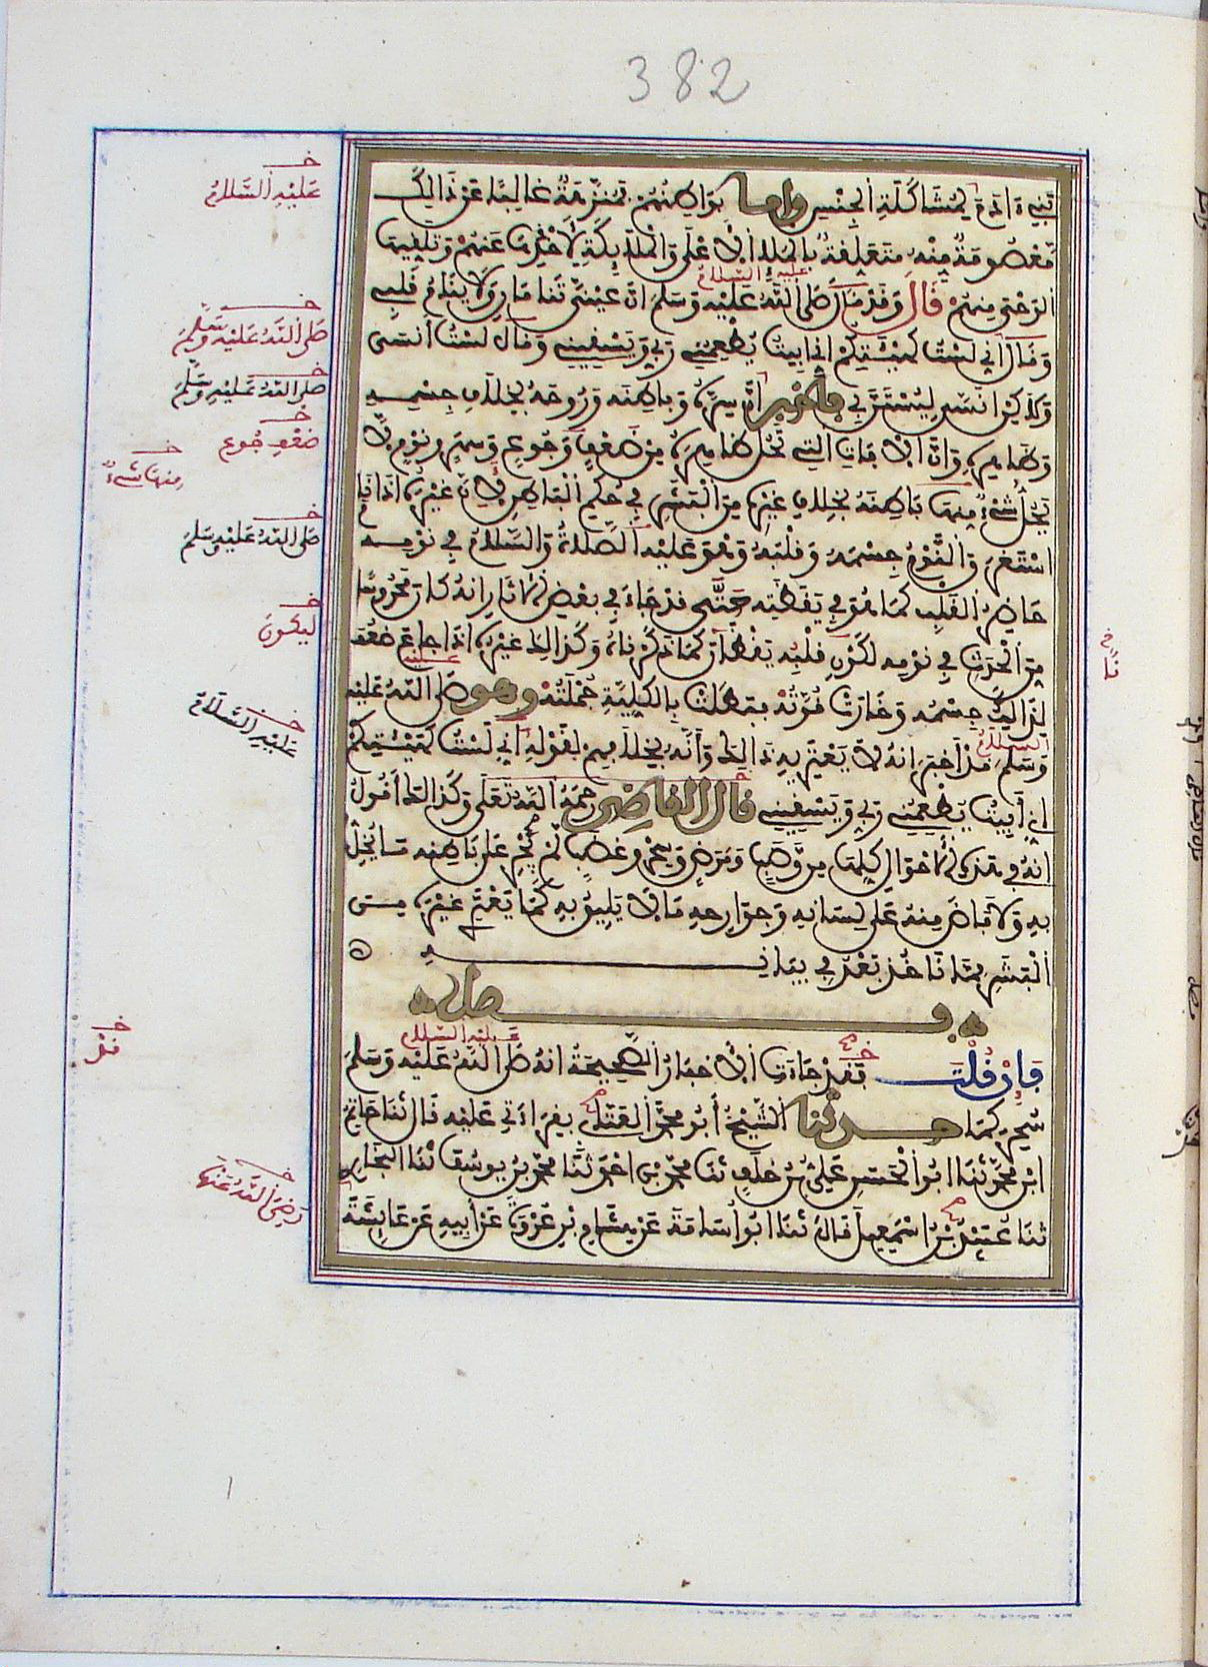 382
بني ءادم لمشاكلة الجنس واما بواطنهم فمنزهة غالبا عن ذالك
معصومة منه متعلقة بالملإ الاعلى والملايكة لاخذها عنهم وتلقيها
الوحي منهم قال وقد قال صلى الله عليه وسلم ان عيني تنامان ولا ينام قلبي
وقال اني لست كهيئتكم اني ابيت يطعمني ربي ويسقيني وقال لست أنسى
ولكن انسى ليستن بي فأخبر ان سره وباطنه وروحه بخلاف جسمه
وظاهره وان الافات التي تحل ظاهره من ضعف وجوع وسهر ونوم لا
يحل شيء منها باطنه بخلاف غيره من البشر في حكم الباطن لأن غيره اذا نام
استغرق النوم جسمه وقلبه وهو عليه الصلاة والسلام في نومه
حاضر القلب كما هو في يقظته حتى قد جاء في بعض الاثار انه كان محروسا
من الحدث في نومه لكون قلبه يقظان كما ذكرناه وكذالك غيره اذا جاع ضعف
لذالك جسمه وخارت قوته فبطلت بالكلية جملته وهو صلى الله عليه
وسلم قد اخبر انه لا يعتريه ذالك وأنه بخلافهم لقوله اني لست كهيئتكم
اني أبيت يطعمني ربي ويسقيني قال القاضي رحمه الله تعلى وكذالك أقول
انه في هذه الاحوال كلها من وصب ومرض وسحر وغضب لم يجر على باطنه ما يخل
به ولا فاض منه على لسانه وجوارحه ما لا يليق به كما يعتري غيره من
البشر مما ناخذ بعد في بيانه
فصل
فإن قلت فقد جاءت الاخبار الصحيحة انه صلى الله عليه وسلم
سحر كما حدثنا الشيخ أبو محمد العتابي بقراءتي عليه قال نا حاتم
ابن محمد نا ابو الحسن علي بن خلف نا محمد بن احمد نا محمد بن يوسف نا البخاري
نا عبيد بن اسمعيل قال نا ابو أسامة عن هشام بن عروة عن أبيه عن عايشة
عليه السلام
صلى الله عليه وسلم
صلى الله عليه وسلم
ضعف جوع
منها شيء
صلى الله عليه وسلم
ليكون
عليه السلام
فقد
رضي الله عنها